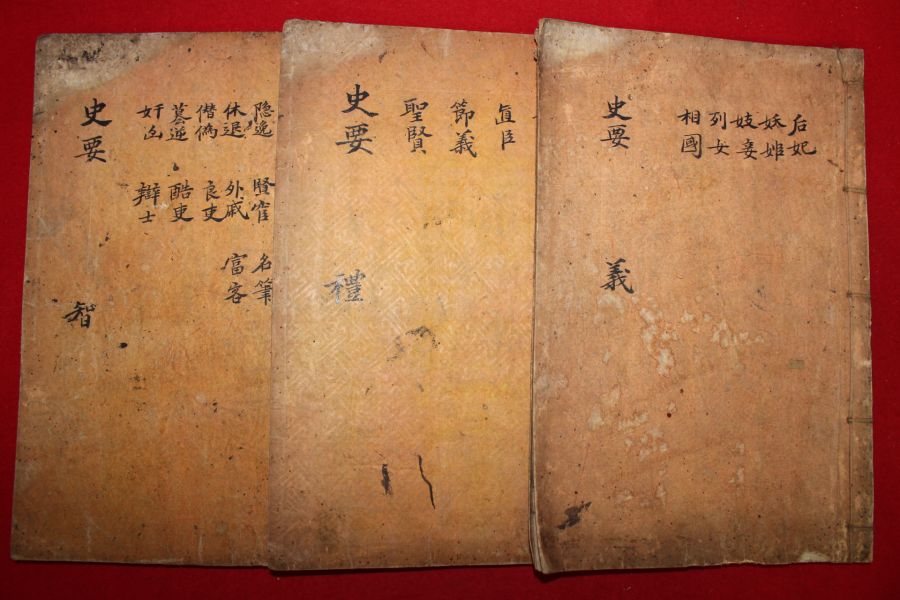 后妃
妖姫
妓妾
列女
相國
史要 義
直臣
節義
聖賢
史要 禮
隐逸 賢宦 名筆
休退 外戚 富客
僭僞 良吏
簒逆 酷吏
奸凶 辯士
史要 智